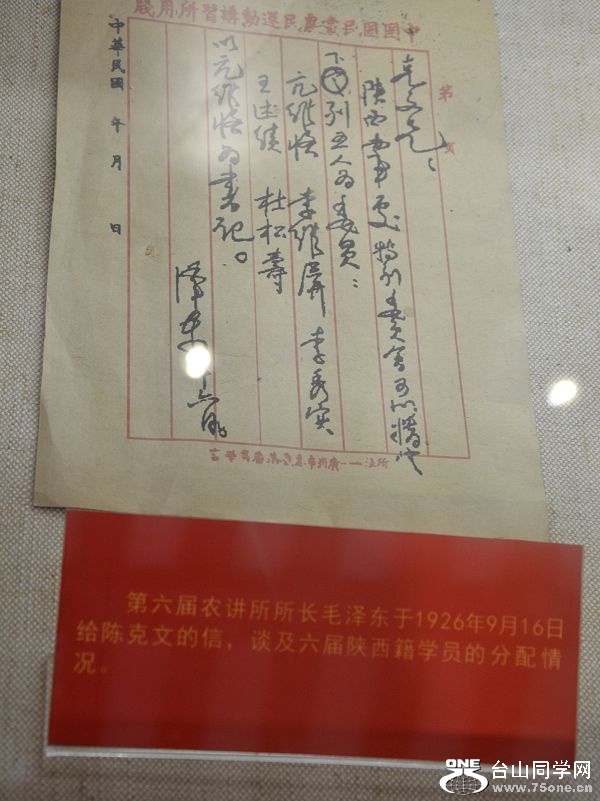 中國國民黨農民運動講習所用箋
第 頁
克文兄：
陝西農事委特別委員會可以指定
下列五人为委員：
亢维恪 李维屏 李秀实
王述绩 杜松壽
以亢维恪为書記。
澤東 十六日
中華民國 年 月 日
所址——廣州市
第六届农讲所所长毛泽东于1926年9月16日
给陈克文的信，谈及六届陕西籍学员的分配情
况。
ONE 台山同学网
www.75one.cn